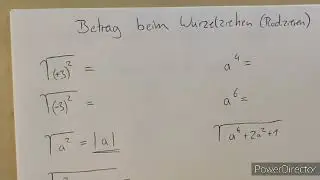 Betrag beim Wurzelziehen (Radizieren)
√(+3)² =
a⁴ =
√(-3)² =
a⁶ =
√a² = |a|
√a⁴+2a²+1
PowerDirector